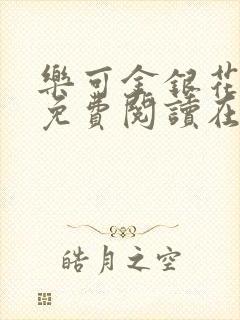 樂可金銀花
免費閱讀在
皓月之空